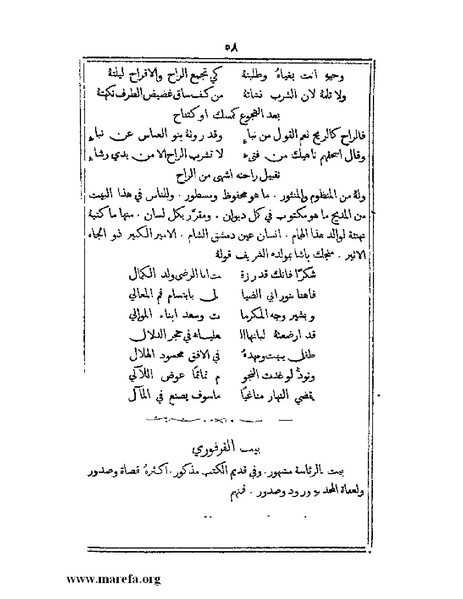 ٥٨
وحيوِ انت بغياهُ وطلبتهُ كي تجمع الراح والافراح ليلتهُ
ولا تلمهُ لان الشرب نشاتهُ من كف ساقٍ غضيض الطرف نكهتهُ
بعد الهجوع كمسك او كتفاح
فالراح كالريح نعم القول من نباءِ وقد رونهُ بنو العباس عن نباءِ
وقال اصحلهم ناهيك من فتىءِ لا تشرب الراح الا من يدي رشاءِ
تقبيل راحته اشهى من الراح
ولهُ من المنظوم والمنثور . ما هو محفوظ ومسطور . وللناس في هذا البيت
من المديح ما هو مكتوب في كل ديوان . ومقرر بكل لسان . منها ما كتبهُ
تهنئة لوالد هذا الهمام . انسان عين دمشق الشام . الامير الكبير ذو الجاه
الاثير . منجك باشا بمولده الشريف قولهُ
شكرًا فانك قد رزقـ ـت ابا الرضى ولد الكمال
فاهنا بنور ابي الضيا لي بابتسام فم المعالي
وبشير وجه المكرما ت وسعد ابناء الموالي
قد ارضعتهُ لبانها العلياء في حجر الدلال
طفل يبيت ومهدهُ في الافق محسود الهلال
وتودُّ لو غدت النجو م تمائمًا عوض اللآلي
يمضي النهار مناغيًا ما سوف يصنع في المآل
بيت الفرفوري
بيت بالرئاسة مشهور . وفي قديم الكتب مذكور . اكثرهُ قضاة وصدور
ولعفاة المجد بهِ ورود وصدور . فمنهم
www.marefa.org